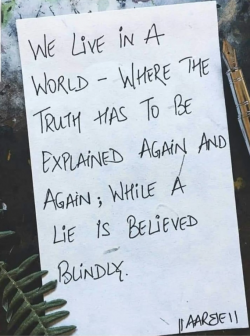 WE LIVE IN A
WORLD – WHERE THE
TRUTH HAS TO BE
EXPLAINED AGAIN AND
AGAIN; WHILE A
LIE IS BELIEVED
BLINDLY.
||AAREJE||